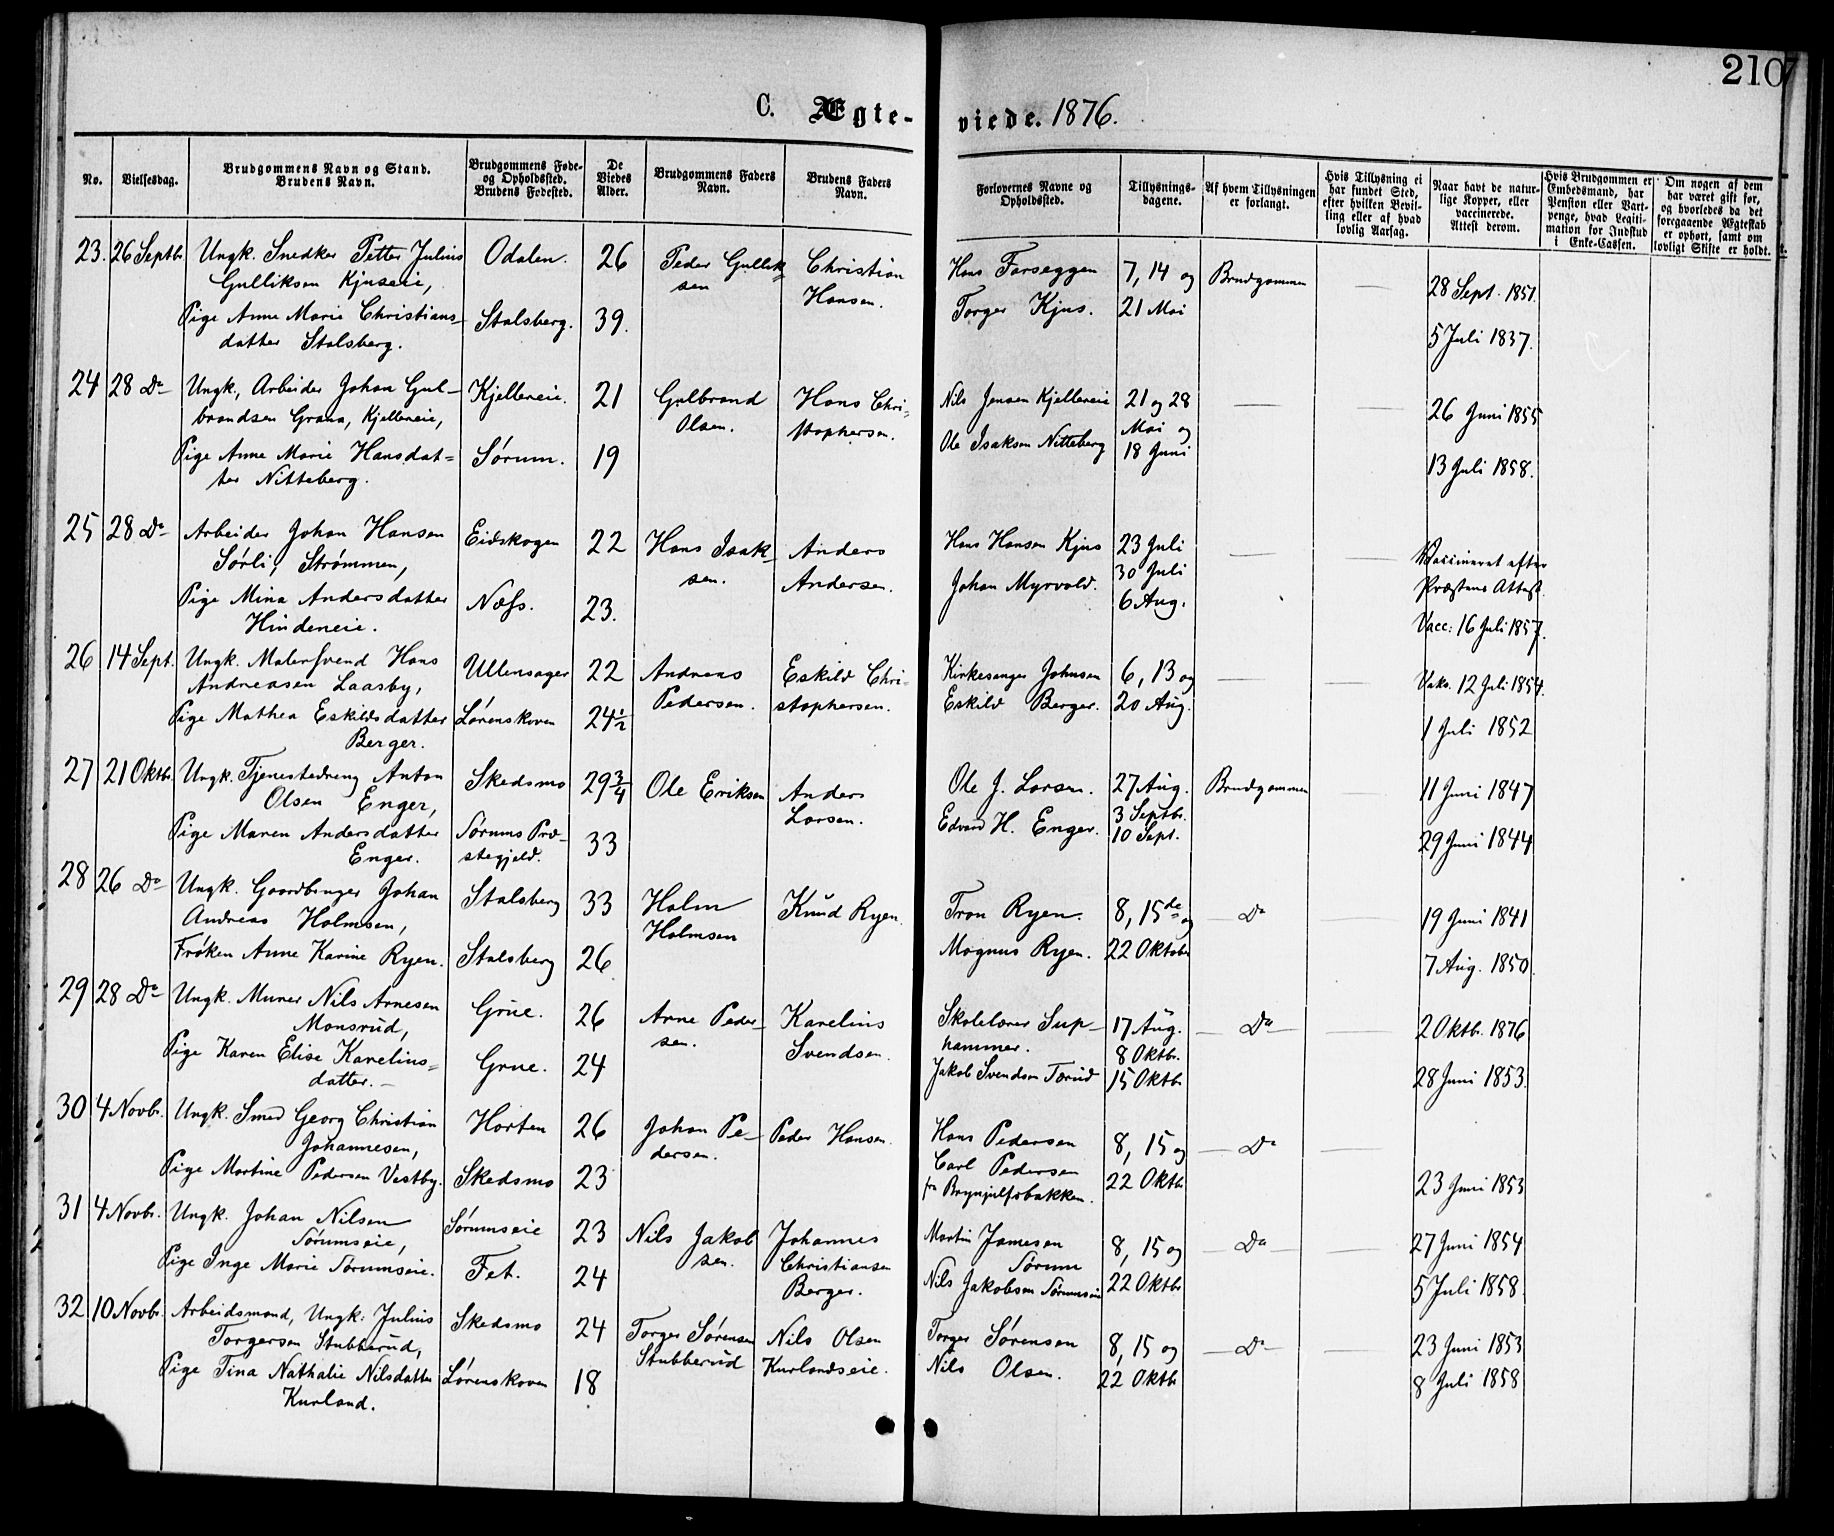 210
C. Ægte-
viede. 1876.
No.
Vielsesdag.
Brudgommens Navn og Stand.
Brudens Navn.
Brudgommens Føde-
og Opholdssted.
Brudens Fødested.
De
Viedes
Alder.
Brudgommens Faders
Navn.
Brudens Faders
Navn.
Forlovernes Navne og
Opholdssted.
Tillysnings-
dagene.
Af hvem Tillysningen
er forlangt.
Hvis Tillysning ei
har fundet Sted,
efter hvilken Bevil-
ling eller af hvad
lovlig Aarsag.
Naar havt de natur-
lige Kopper, eller
vaccinerede.
Attest derom.
Hvis Brudgommen er
Embedsmand, har
Pension eller Vart-
penge, hvad Legiti-
mation for Indskud
i Enke-Cassen.
Om nogen af dem
har været gift før,
og hvorledes da det
foregaaende Ægteskab
er ophørt, samt om
lovligt Skifte er holdt.
23. 26 Septbr Ungk. Snedker Petter Julius Odalen. 26 Peder Gullik Christian Hans Forseggen 7, 14 og Brudgommen
Gulliksen Kjuseie, sen Hansen. 28 Sept. 1851.
Pige Anne Marie Christians- Stalsberg. 39. Torger Kjus. 21 Mai
datter Stalsberg. 5 Juli 1837.
24 28 Do Ungk, Arbeider Johan Gul- Kjellereie. 21 Gulbrand Hans Chri- Nils Jensen Kjellereie 21 og 28
brandsen Grana, Kjellereie, Olsen. stophersen. Mai og 26 Juni 1855
Pige Anne Marie Hansdat= Sørum. 19 Ole Isaksen Nitteberg 18 Juni
ter Nitteberg. 13 Juli 1858.
25 28 Do Arbeider Johan Hansen Eidskogen 22 Hans Isak- Anders Hans Hansen Kjus 23 Juli Vaccineret efter
Sørli, Strømmen, sen. Andersen. 30 Juli Præstens Attest.
Pige Mina Andersdatter Næss. 23. Johan Myrvold. 6 Aug.
Hindeneie. Vacc: 16 Juli 1857.
26 14 Sept. Ungk. Malersvend Hans Ullensager 22 Andreas Eskild Chri- Kirkesanger Johnsen 6, 13 og Vaks. 12 Juli 1854.
Andreasen Laasby, Pedersen. stophersen.
Pige Mathea Eskildsdatter Lørenskoven 24½ Eskild Berger. 20 Aug. 1 Juli 1852
Berger.
27 21 Oktbr. Ungk. Tjenestedreng Anton Skedsmo 29¾ Ole Eriksen Anders Ole J. Larsen. 27 Aug. Brudgommen 11 Juni 1847
Olsen Enger, Larsen. 3 Septbr.
Pige Maren Andersdatter Sørums Præ- 33 Edvard H. Enger. 10 Sept. 29 Juni 1844
Enger. stegjeld.
28 26 Do Ungk. Gaardbruger Johan Stalsberg 33 Holm Knud Ryen. Tron Ryen. 8, 15de og Do 19 Juni 1841
Andreas Holmsen, Holmsen
Frøken Anne Karine Ryen. Stalsberg 26 Magnus Ryen. 22 Oktober 7 Aug. 1850.
29 28 Do Ungk. Murer Nils Arnesen Grue. 26 Arne Peder- Karelius Skolelærer Sup- 17 Aug. Do 2 Oktb. 1876
Monsrud, sen. Svendsen. hammer. 8 Oktbr.
Pige Karen Elise Karelius= Grue. 24 Jakob Svendsen Tærud 15 Oktb. 28 Juni 1853.
datter. –
30 4 Novbr. Ungk. Smed Georg Christian Horten 26 Johan Pe- Peder Hansen. Hans Pedersen 8, 15 og Do
Johannesen, dersen. Carl Pedersen
Pige Martine Pedersen Vestby. Skedsmo 23 fra Brynjulfsbakken. 22 Oktb 23 Juni 1853
31 4 Novbr. Ungk. Johan Nilsen Sørumseie 23 Nils Jakob Johannes Martin Jamesen 8, 15 og Do 27 Juni 1854
Sørumseie, sen. Christiansen Sørum
Pige Inge Marie Sørumseie. Fet. 24 Berger. Nils Jakobsen Sørumseie 22 Oktb 5 Juli 1858.
32 10 Novbr. Arbeidsmand, Ungk. Julius Skedsmo 24 Torger Sørensen Nils Olsen Torger Sørensen 8, 15 og Do 23 Juni 1853
Torgersen Stubberud, Stubberud Kurlandseie.
Pige Tina Nathalie Nilsdatter Lørenskoven 18 Nils Olsen. 22 Oktb 8 Juli 1858
Kurland.